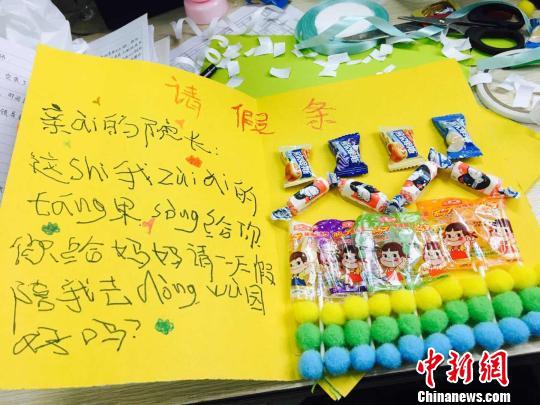 请假条
亲ai的院长:
这shi我zui ai的
tang果song给你
你给妈妈请一天假
陪我去dong wu园
好吗?
中新网
Chinanews.com